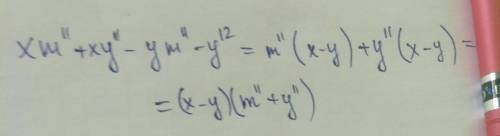 xm¹¹+xy¹¹-ym¹¹-y¹²=m¹¹(x-y)+y¹¹(x-y)=
=(x-y)(m¹¹+y¹¹)